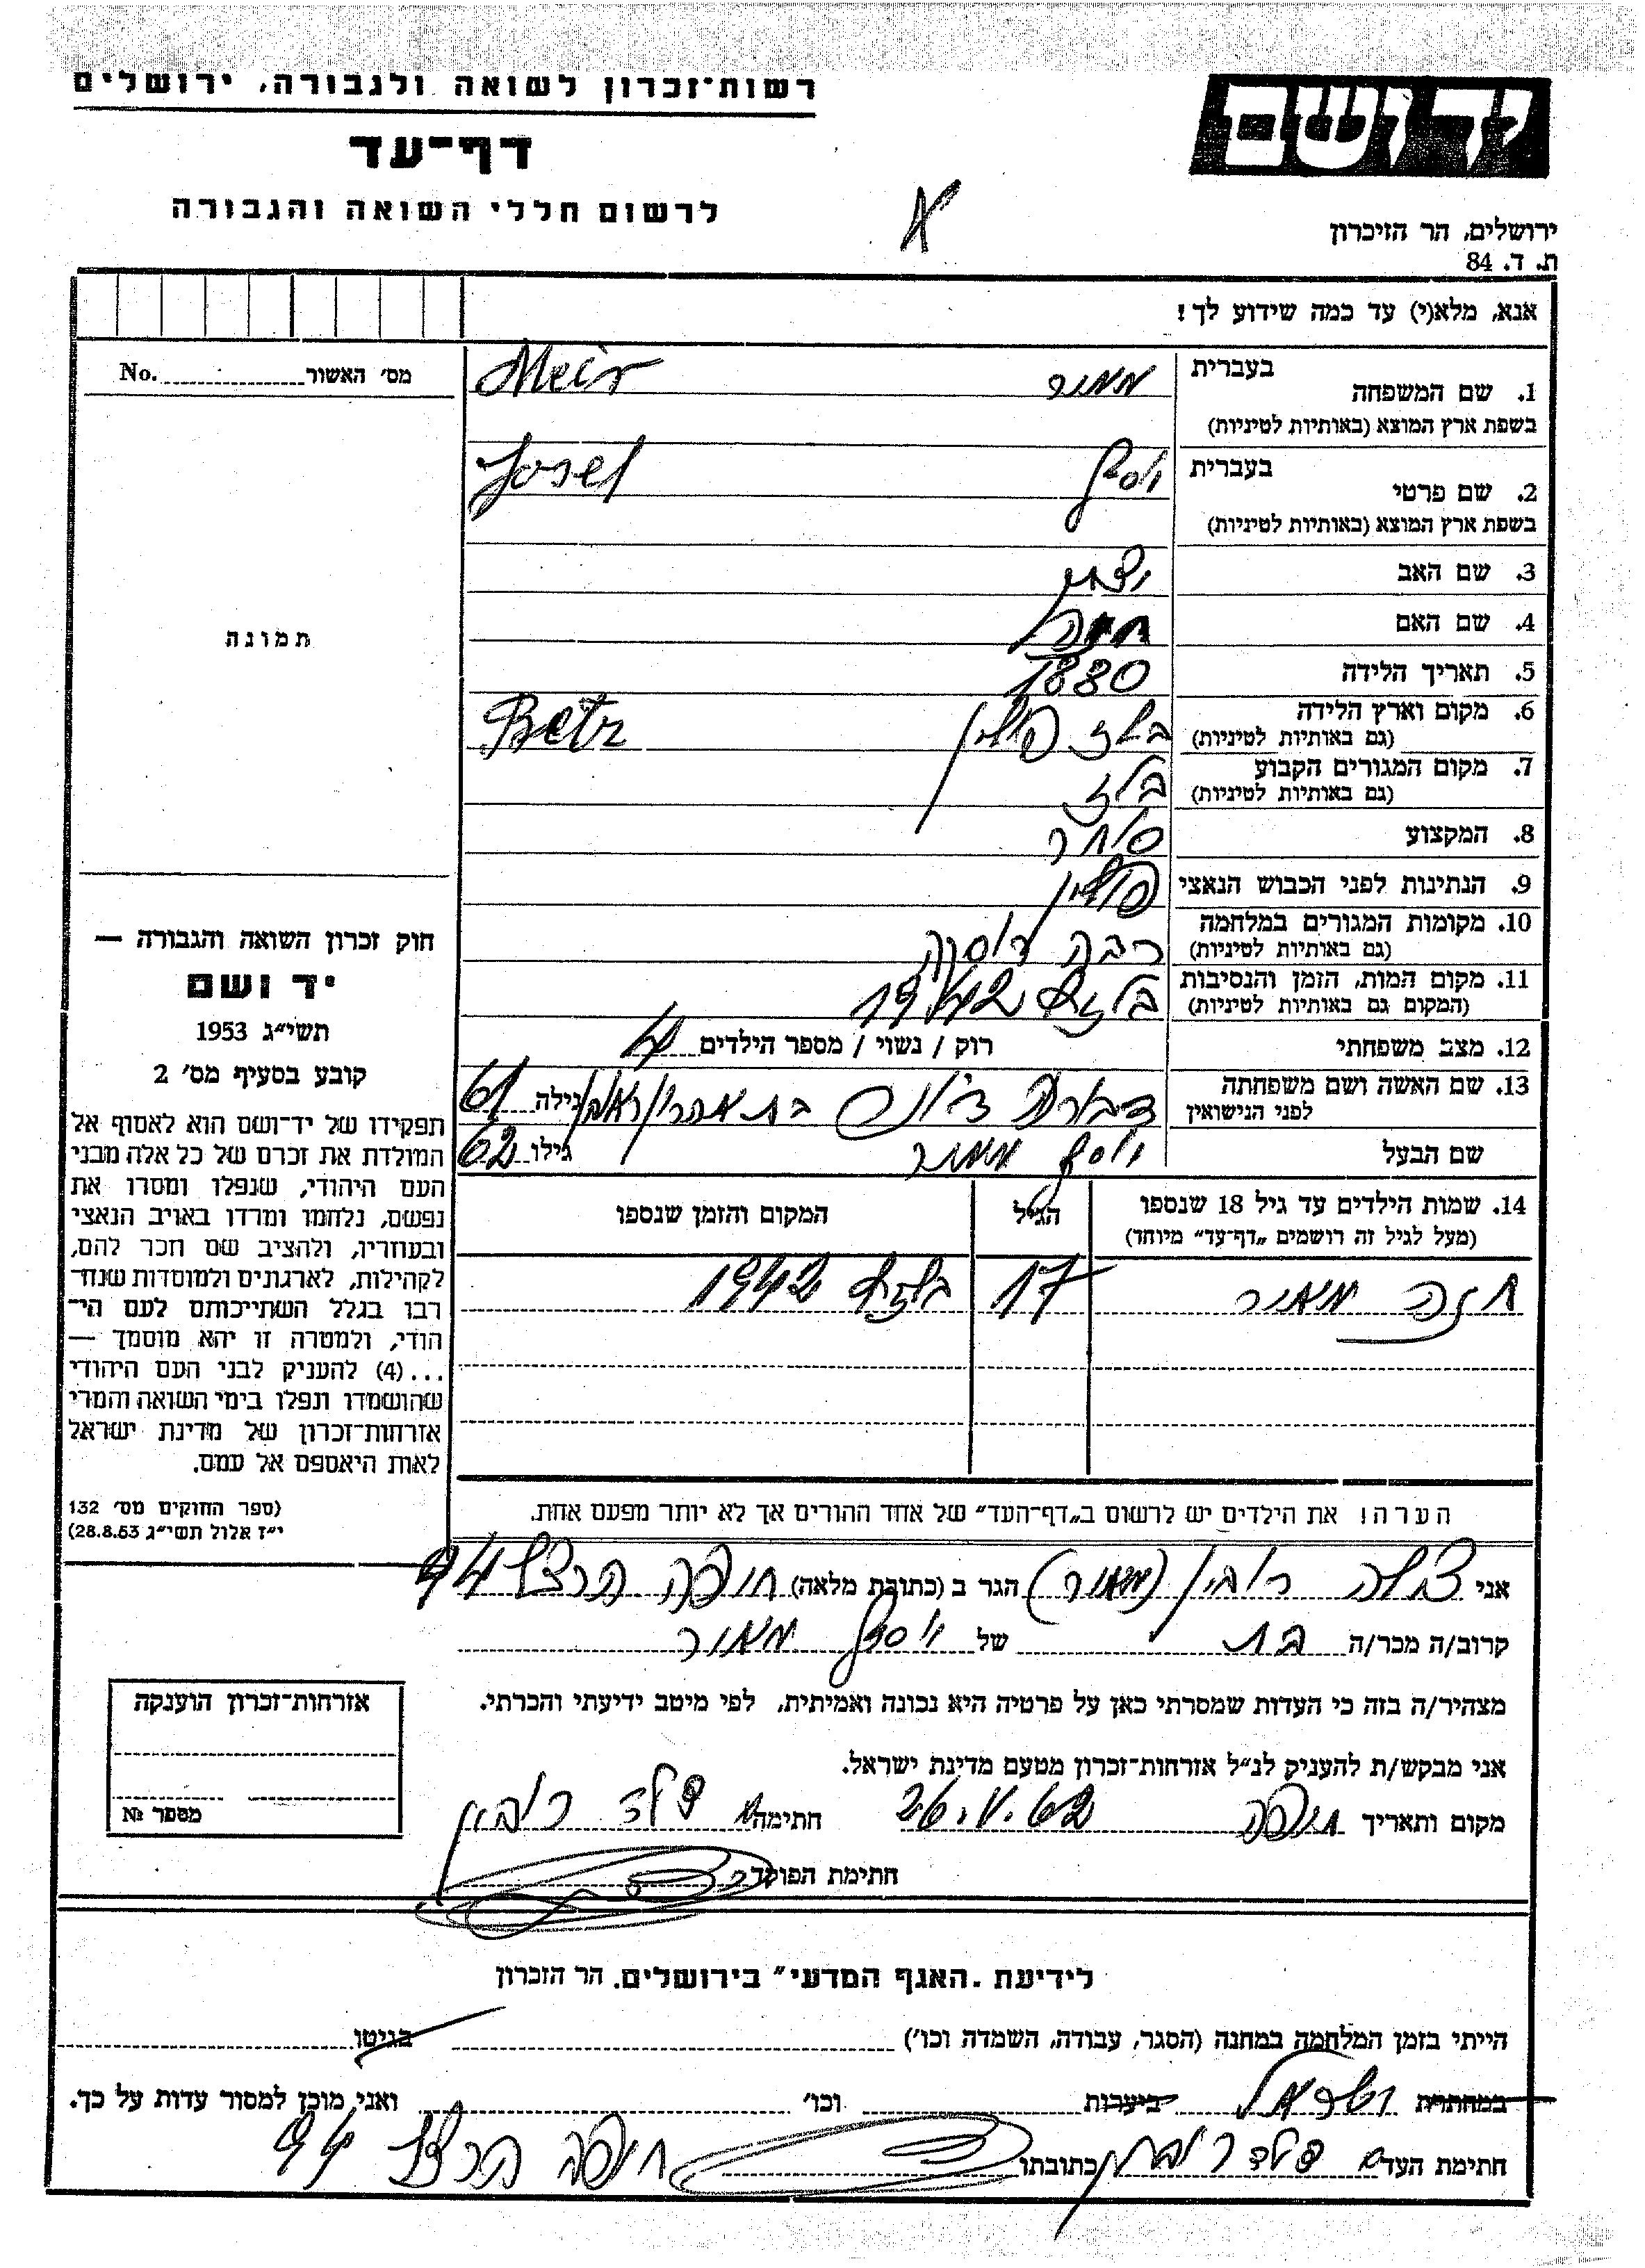 רשות־זכרון לשואה ולגבורה, ירושלים
דף־עד
לרשום חללי השואה והגבורה
יד ושם
ירושלים, הר הזיכרון
ת. ד. 84
אנא, מלא(י) עד כמה שידוע לך!
No. מס׳ האשור
תמונה
1. שם המשפחה בעברית מאור Meir
בשפת ארץ המוצא (באותיות לטיניות)
2. שם פרטי בעברית יוסף Josef
בשפת ארץ המוצא (באותיות לטיניות)
3. שם האב יצחק
4. שם האם
5. תאריך הלידה 1880
6. מקום וארץ הלידה בלז פולין Betz
(גם באותיות לטיניות)
7. מקום המגורים הקבוע בלז
(גם באותיות לטיניות)
8. המקצוע סוחר
9. הנתינות לפני הכבוש הנאצי פולין
10. מקומות המגורים במלחמה רבה רוסקה
(גם באותיות לטיניות)
11. מקום המות, הזמן והנסיבות בלזץ 1942
(המקום גם באותיות לטיניות)
12. מצב משפחתי רוק / נשוי / מספר הילדים 4
13. שם האשה ושם משפחתה גילה 61
לפני הנישואין
שם הבעל יוסף מאור גילו 62
14. שמות הילדים עד גיל 18 שנספו הגיל המקום והזמן שנספו
(מעל לגיל זה רושמים „דף־עד״ מיוחד)
מאור 17 1942
הערה! את הילדים יש לרשום ב„דף־העד״ של אחד ההורים אך לא יותר מפעם אחת.
חוק זכרון השואה והגבורה —
יד ושם
תשי״ג 1953
קובע בסעיף מס׳ 2
תפקידו של יד־ושם הוא לאסוף אל
המולדת את זכרם של כל אלה מבני
העם היהודי, שנפלו ומסרו את
נפשם, נלחמו ומרדו באויב הנאצי
ובעוזריו, ולהציב שם וזכר להם,
לקהילות, לארגונים ולמוסדות שנח־
רבו בגלל השתייכותם לעם הי־
הודי, ולמטרה זו יהא מוסמך —
...(4) להעניק לבני העם היהודי
שהושמדו ונפלו בימי השואה והמרי
אזרחות־זכרון של מדינת ישראל
לאות היאספם אל עמם.
(ספר החוקים מס׳ 132
י״ז אלול תשי״ג 28.8.53)
אני רובין (מאור) הגר ב (כתובת מלאה) חיפה הרצל 94
קרוב/ה מכר/ה בת של יוסף מאור
מצהיר/ה בזה כי העדות שמסרתי כאן על פרטיה היא נכונה ואמיתית, לפי מיטב ידיעתי והכרתי.
אני מבקש/ת להעניק לנ״ל אזרחות־זכרון מטעם מדינת ישראל.
מקום ותאריך חיפה 26.V.62 חתימה רובין
חתימת הפוקד
אזרחות־זכרון הוענקה
מספר №
לידיעת „האגף המדעי״ בירושלים. הר הזכרון
הייתי בזמן המלחמה במחנה (הסגר, עבודה, השמדה וכו׳) בגיטו
במחתרת ביערות וכו׳ ואני מוכן למסור עדות על כך.
חתימת העד רובין כתובתו חיפה הרצל 94